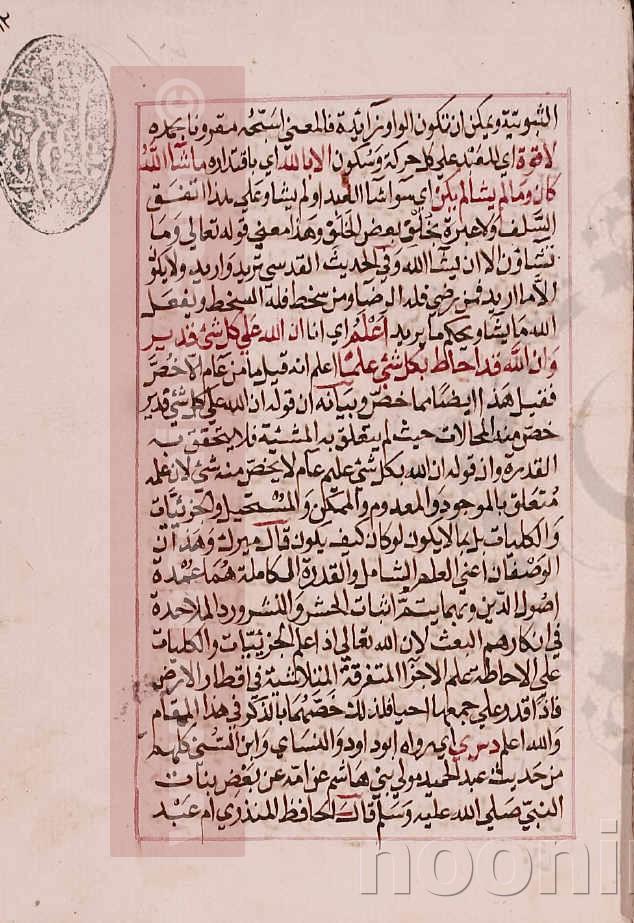 الثبوتية ويمكن ان تكون الواو زائدة فالمعنى اسبحه مقرونا بحمده
لا قوة اي للعبد علي كل حركة وسكون الا بالله اي باقتداره ما شاالله
كان وما لم يشا لم يكن اي سوا شا العبد او لم يشا وعلي هذا اتفق
السلف ولا عبرة بخلق بعض الخلق وهذا معني قوله تعالي وما
تشاؤن الا ان يشا الله وفي الحديث القدسي تريد واريد ولا يكون
الا ما اريد فمن رضي فله الرضا ومن سخط فله السخط ويفعل
الله ما يشا ويحكم ما يريد اعلم اي انا ان الله علي كل شئ قدير
وان الله قد احاط بكل شئ علما اعلم انه قيل ما من عام الا خص
فقيل هذا ايضا مما خص وبيانه ان قوله ان الله علي كل شئ قدير
خص منه المحالات حيث لم يتعلق به المشئية فلا يتحقق به
القدرة وان قوله ان الله بكل شئ عليم عام لا يخص منه شئ لان علمه
متعلق بالموجود والمعدوم والممكن والمستحيل والجزئيات
والكليات بل بما لا يكون لو كان كيف يكون قال ميرك وهذان
الوصفان اعني العلم الشامل والقدرة الكاملة هما عمدة
اصول الدين وبهما يتم اثبات الحشر والنشر ورد الملاحدة
في انكارهم البعث لان الله تعالي اذا علم الجزئيات والكليات
علي الاحاطة علم الاجزا المتفرقة المتلاشية في اقطار الارض
فاذا قدر علي جمعها احيا فلذلك خصهما بالذكر في هذا المقام
والله اعلم د س ي اي رواه ابو داود والنساي وابن السني كلهم
من حديث عبد الحميد مولي بني هاشم عن امه عن بعض بنات
النبي صلي الله عليه وسلم قال الحافظ المنذري ام عبد
noonin